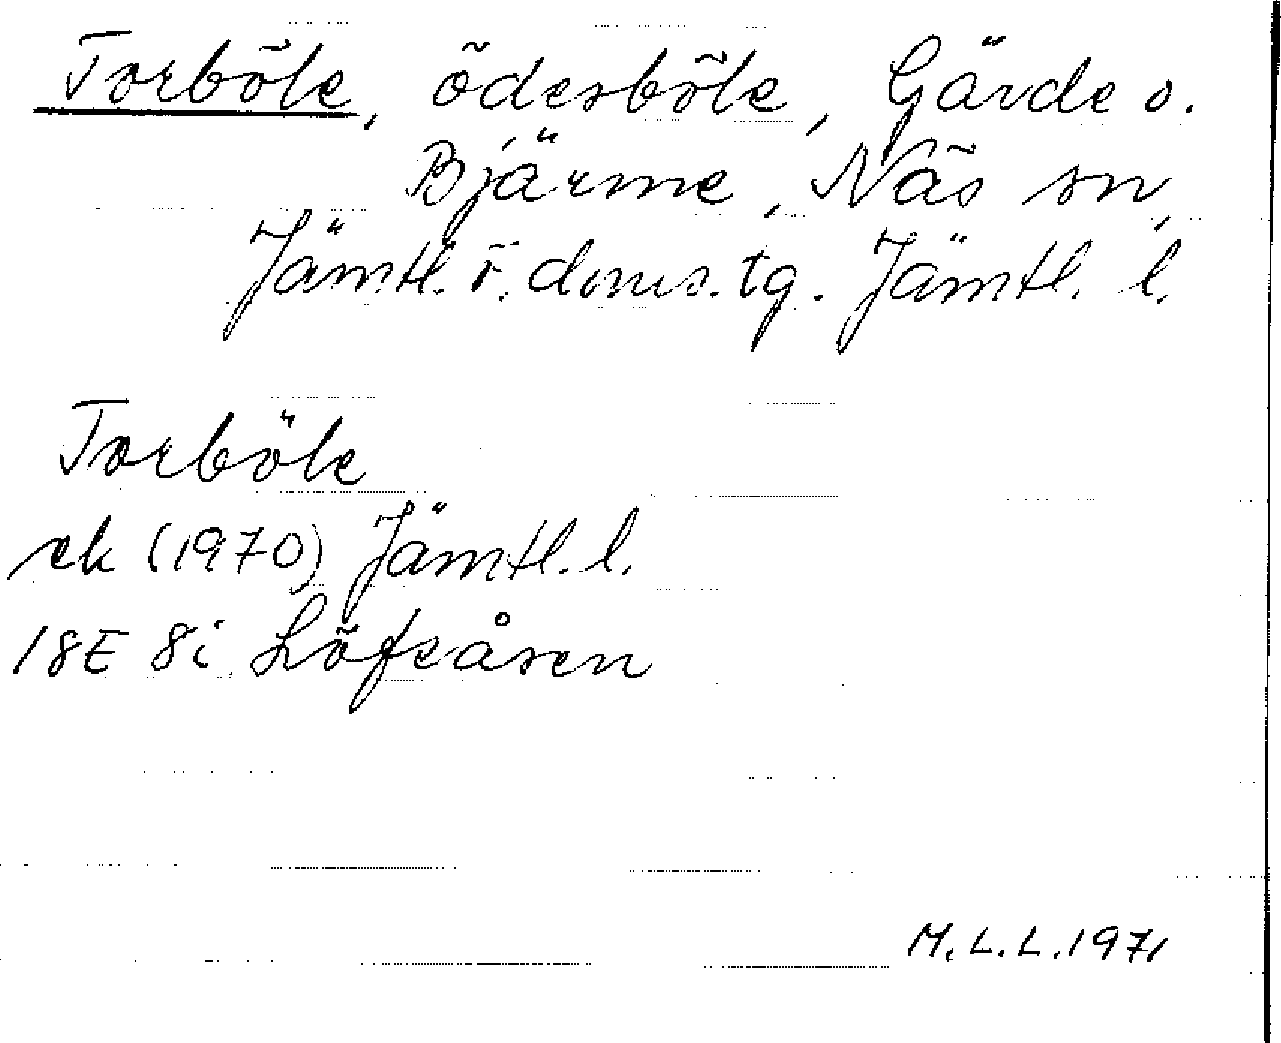 Torböle, ödesböle, Gärde o.
Bjärme, Näs sn,
Jämtl. v. doms. tg. Jämtl. l.
Torböle
ek (1970) Jämtl. l.
18E 8i Löfsåsen
M.L.L. 1971